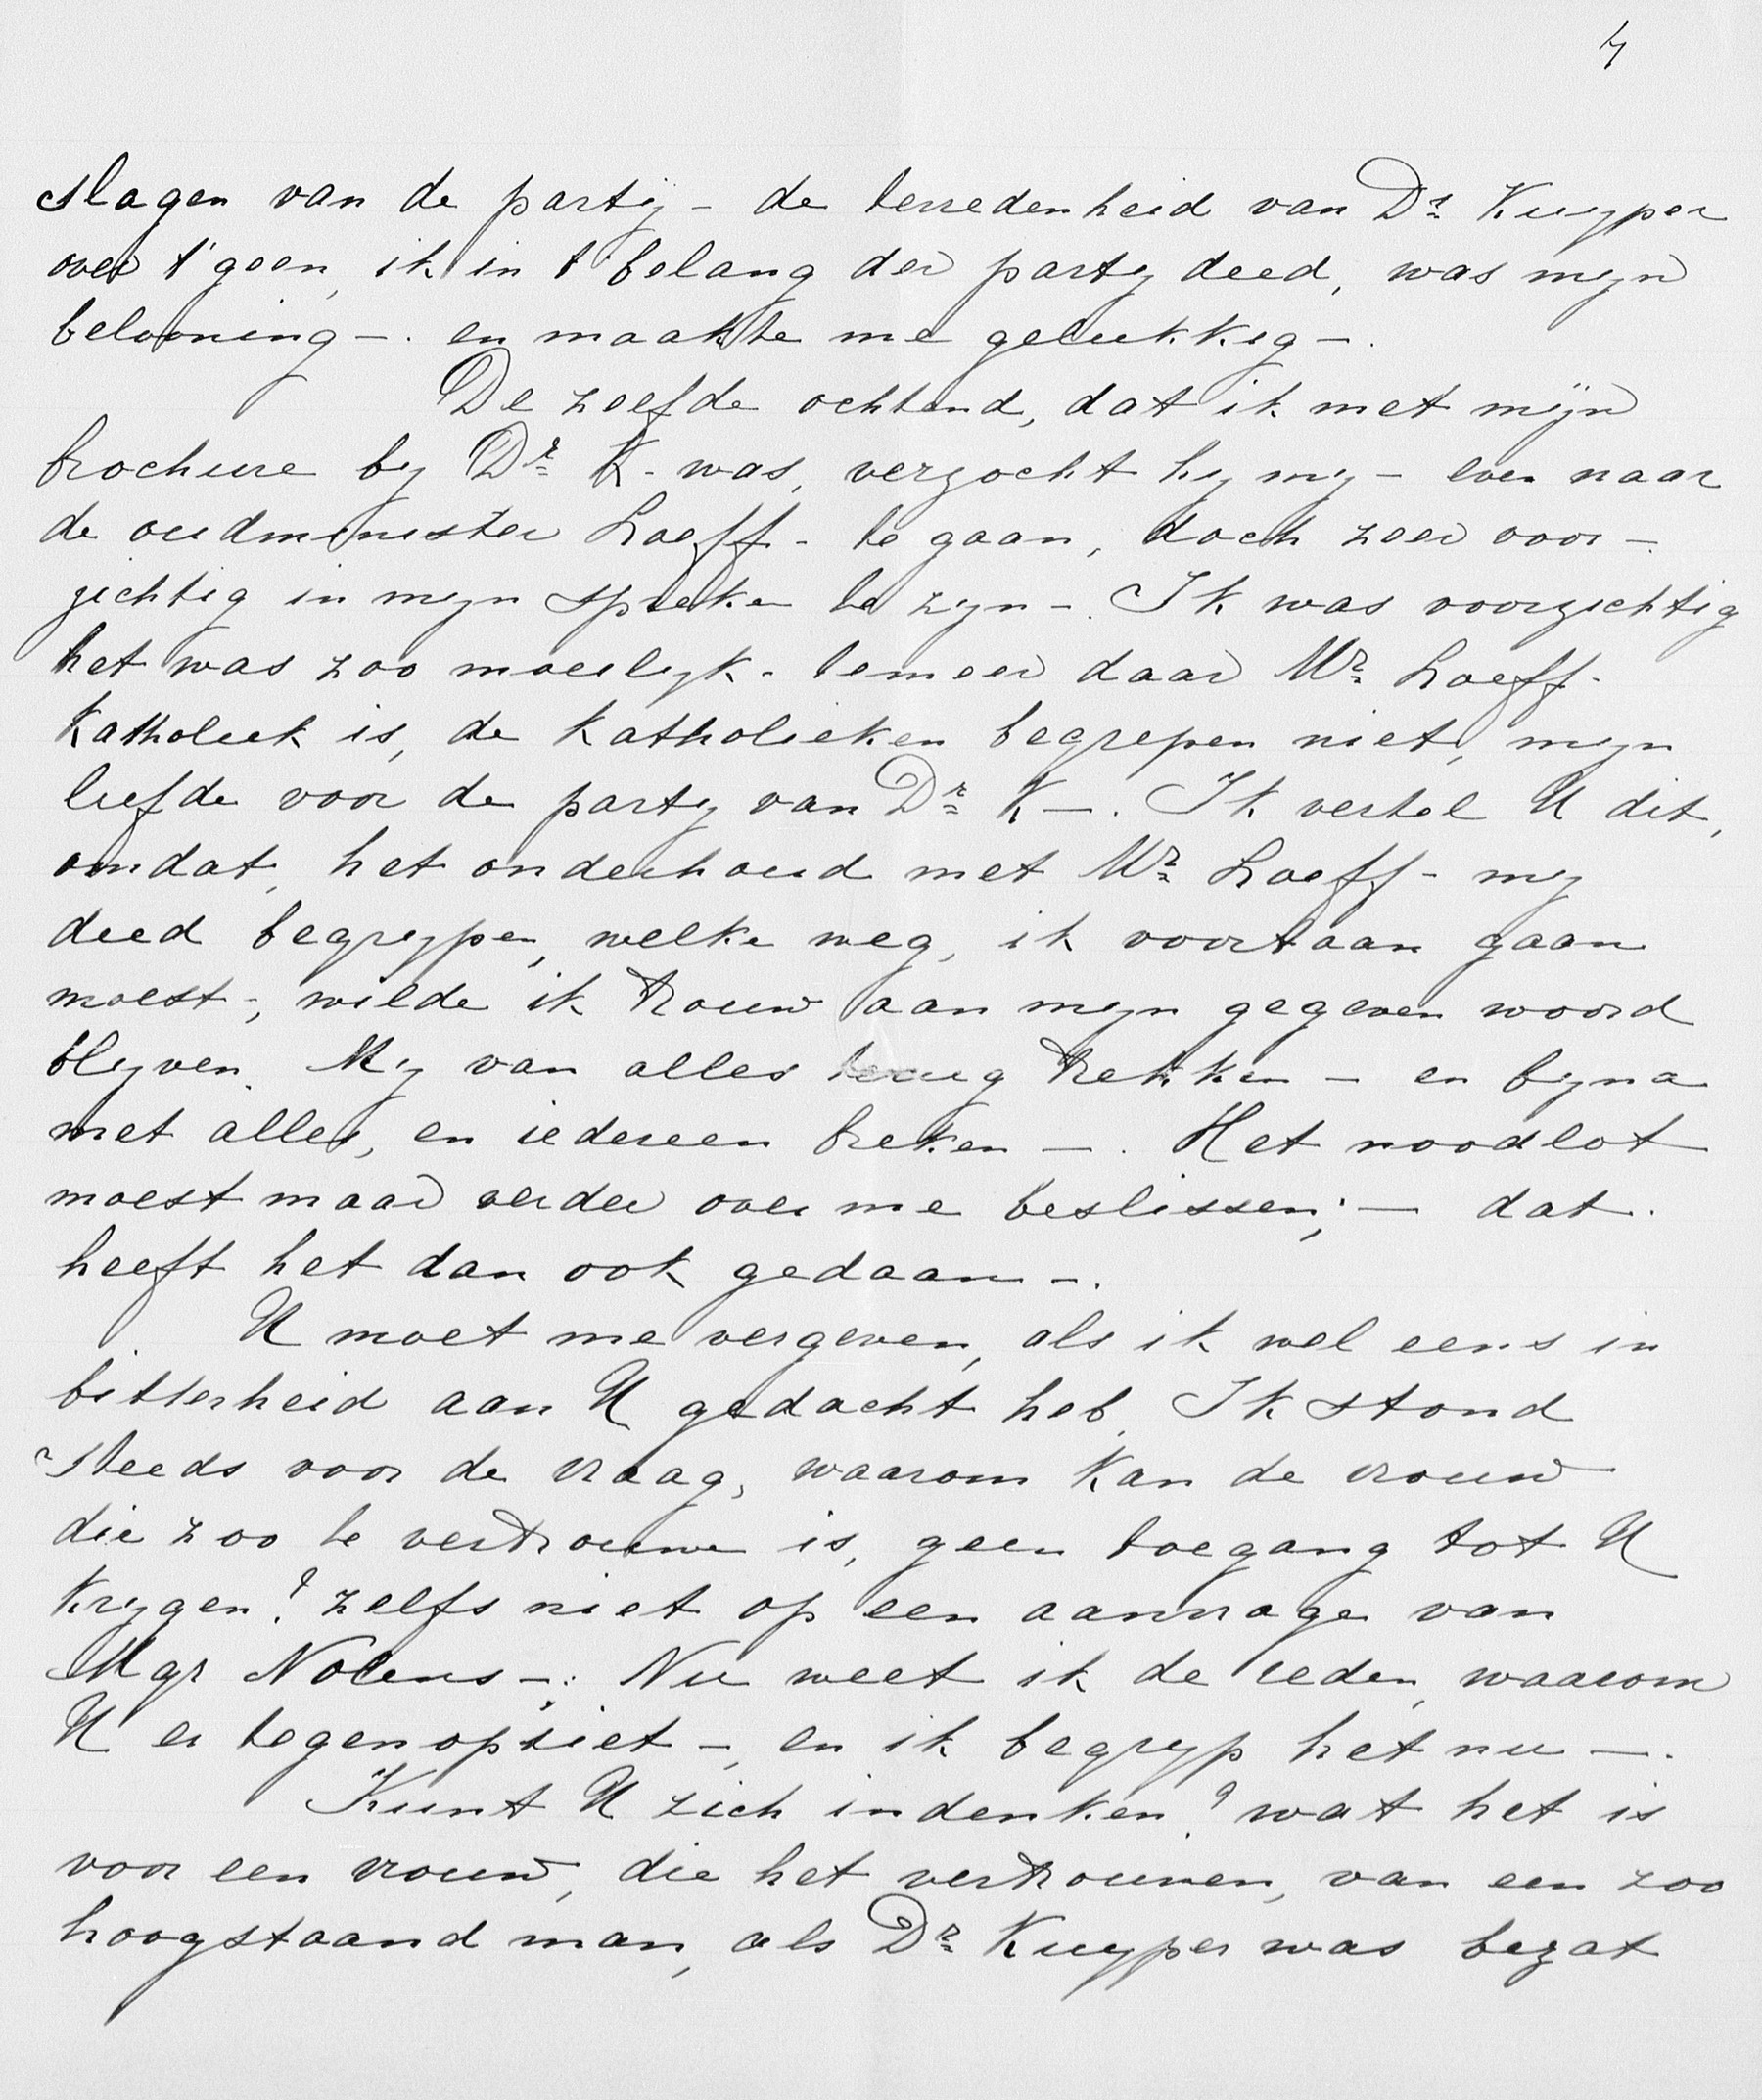 4
slagen van de partij - de tevredenheid van Dr Kuyper
over t'geen, ik in t'belang der party deed, was mijn
belooning -. en maakte me gelukkig -.
De zelfde ochtend, dat ik met mijn
brochure by Dr K - was, verzocht hy my - even naar
de oudminister Loeff - te gaan, doch zeer voor-
zichtig in myn spreken te zyn -. Ik was voorzichtig
het was zoo moeilyk - temeer daar Mr Loeff -
Katholiek is, de Katholieken begrepen niet, myn
liefde voor de party van Dr K -. Ik vertel U dit,
omdat, het onderhoud met Mr Loeff - my
deed begrypen, welke weg, ik voortaan gaan
moest -, wilde ik trouw aan myn gegeven woord
blyven. My van alles terug trekken - en byna
met alles, en iedereen breken -. Het noodlot
moest maar verder over me beslissen; - dat.
heeft het dan ook gedaan -.
U moet me vergeven, als ik wel eens in
bitterheid aan U gedacht heb. Ik stond
steeds voor de vraag, waarom kan de vrouw
die zoo te vertrouwen is, geen toegang tot U
krygen? zelfs niet op een aanvrage van
Mgr Nolens -: Nu weet ik de reden, waarom
U er tegenopziet -, en ik begryp het nu -.
Kunt U zich indenken? wat het is
voor een vrouw, die het vertrouwen, van een zoo
hoogstaand man, als Dr Kuyper was bezat